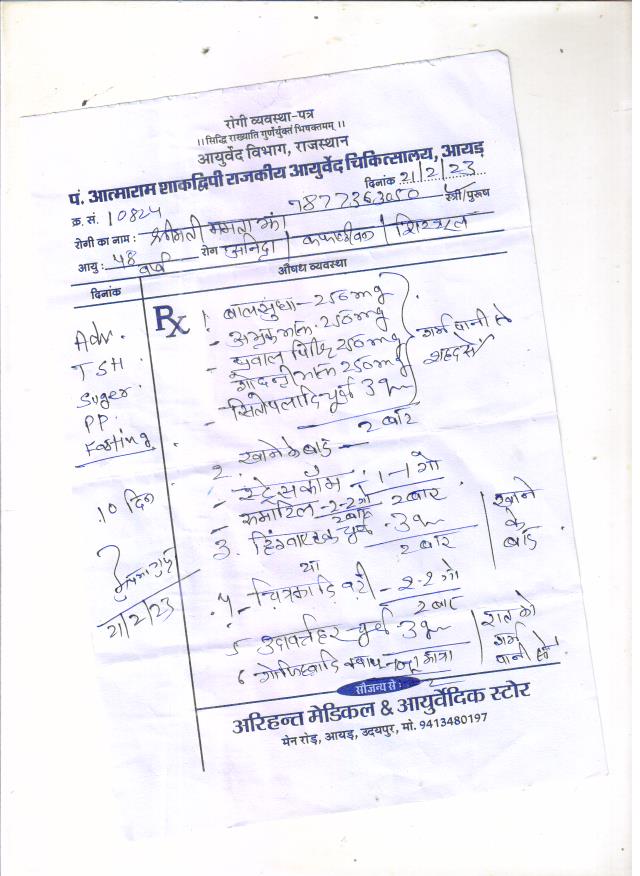 रोगी व्यवस्था-पत्र
।। सिद्धि राख्याति गुणैर्युक्तं भिषक्तमम् ।।
आयुर्वेद विभाग, राजस्थान
पं. आत्माराम शाकद्विपी राजकीय आयुर्वेद चिकित्सालय, आयड़
दिनांक 21/2/23
क्र. सं. 10824
स्त्री/पुरूष
रोगी का नाम : श्रीमती ममता
आयु : 48 वर्ष रोग
दिनांक औषध व्यवस्था
Rx
1. बालसुधा - 250mg
- अभ्रक भस्म. 250mg
- प्रवाल पिष्टि 250mg
- गोदन्ती भस्म 250mg
- सितोपलादि चूर्ण 3
गर्म पानी से
शहद से
2 बार
Adv.
TSH
Suger.
PP.
Fasting
2. खाने के बाद -
- स्ट्रेसकॉम - 1-1 गो
2 बार
3. चूर्ण - 3
2 बार
खाने
के
बाद
10 दिन
या
4 - चित्रकादि वटी - 2-2 गो
2 बार
21/2/23
5 उदावर्तहर चूर्ण - 3
6 - गोजिह्वादि क्वाथ
रात को
गर्म
पानी से
सौजन्य से :
अरिहन्त मेडिकल & आयुर्वेदिक स्टोर
मेन रोड़, आयड़, उदयपुर, मो. 9413480197